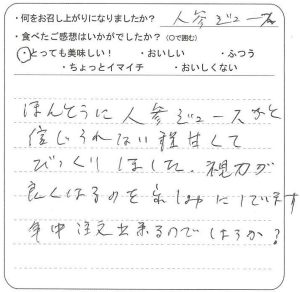 ・何をお召し上がりになりましたか? 人参ジュース
・食べたご感想はいかがでしたか?(○で囲む)
・とっても美味しい! ・おいしい ・ふつう
・ちょっとイマイチ ・おいしくない
ほんとうに人参ジュースかと
信じられない程甘くて
びっくりしました.視力が
良くなるのを楽しみにしてます
年中注文出来るのでしょうか?